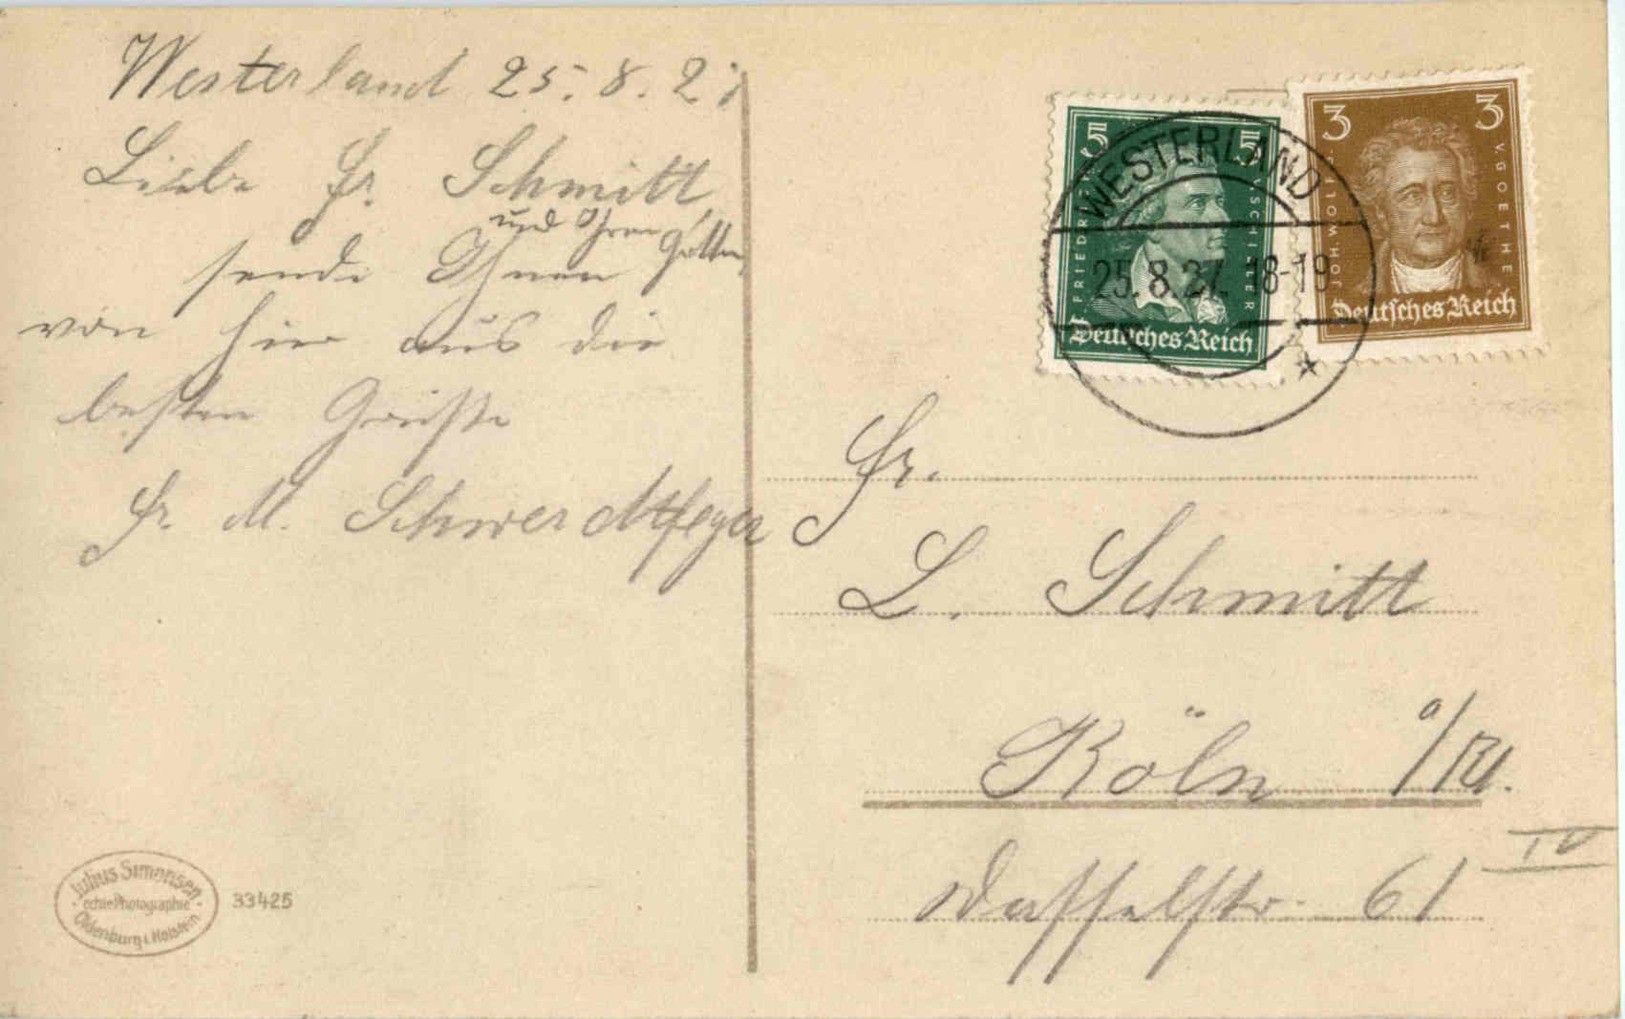 Westerland 25.8.27
Liebe Fr. Schmitt
und Ihren Gatten
sende Ihnen
von hier aus die
besten Grüße
Fr. M. Schwerdtfeger
Julius Simonsen
echte Photographie
Oldenburg i. Holstein
33425
5 5
FRIEDR. V. SCHILLER
Deutsches Reich
3 3
JOH. WOLFG. V. GOETHE
Deutsches Reich
WESTERLAND
25.8.27. 18-19
Fr.
L. Schmitt
Köln a/Rh.
IV
Dasselstr. 61